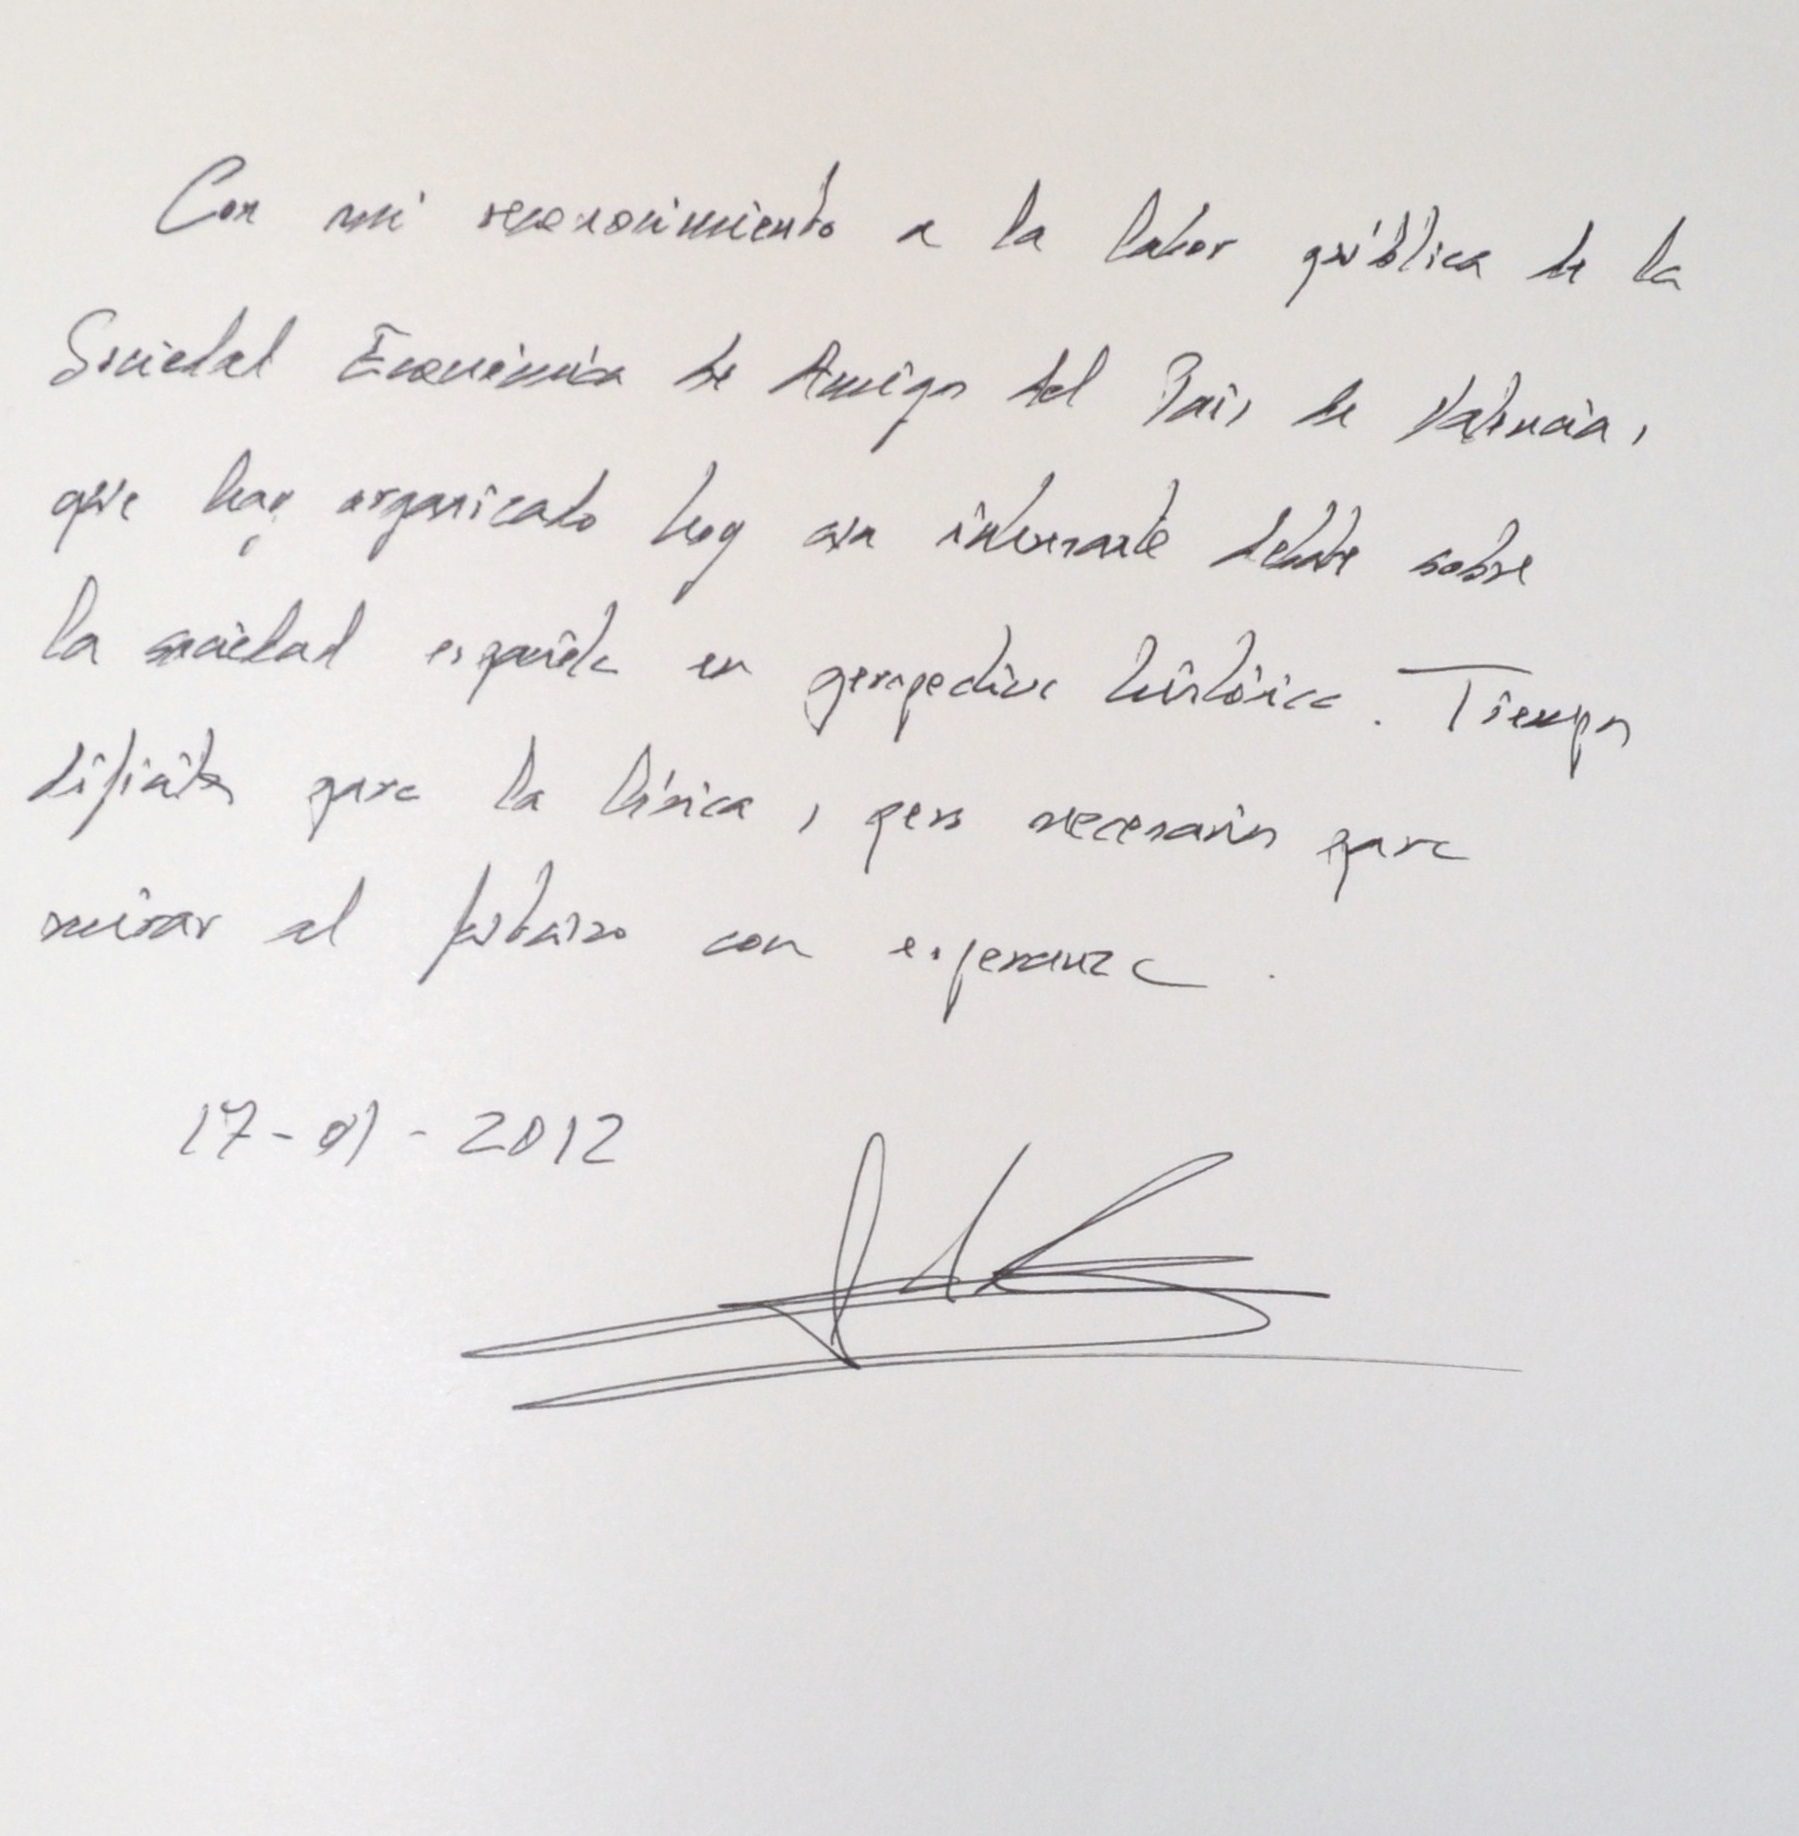 Con mi reconocimiento a la labor pública de la
Sociedad Económica de Amigos del País de Valencia,
que han organizado hoy un interesante debate sobre
la sociedad española en perspectiva histórica. Tiempos
difíciles para la lírica, pero necesarios para
mirar al futuro con esperanza.
17-01-2012